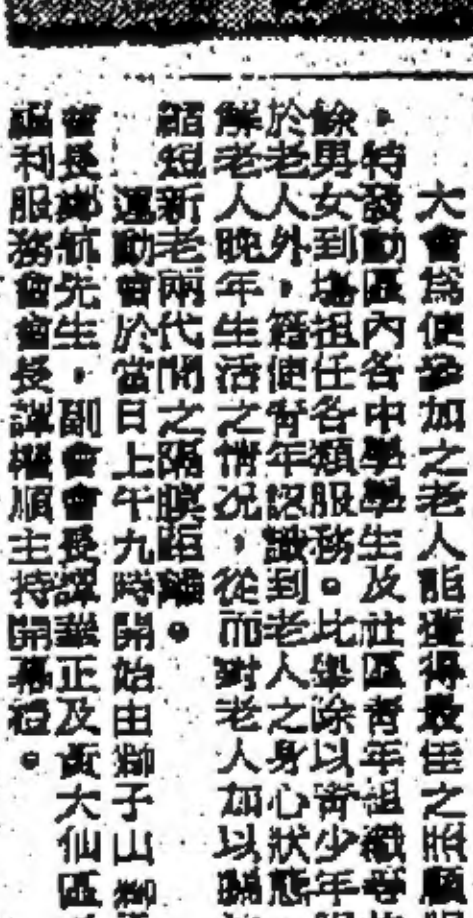 大會爲使參加之老人能獲得最佳之照顧
，特發動區內各中學學生及社區青年組織等
餘男女到塲担任各類服務。此舉除以青少年
於老人外，籍使青年認識到老人之身心狀態
解老人晚年生活之情况，從而對老人加以關
縮短新老兩代間之隔膜距離。
運動會於當日上午九時開始由獅子山獅
會長鄭航先生，副會會長譚華正及黃大仙區
福利服務會會長譚權順主持開幕禮。